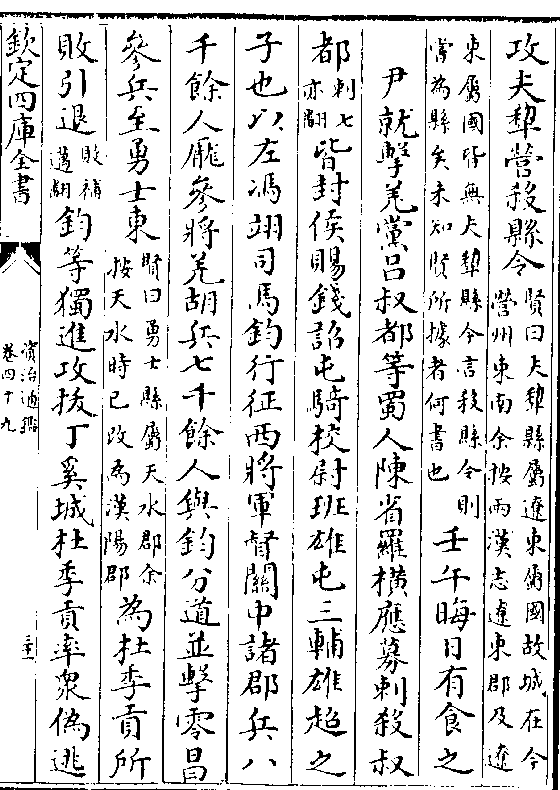 攻夫犂營殺縣令賢曰夫犂縣屬遼東屬國故城在今營州東南余按兩漢志遼東郡及遼
東屬國皆無夫犂縣今言殺縣令則嘗為縣矣未知賢所據者何書也壬午晦日有食之
尹就擊羌黨呂叔都等蜀人陳省羅橫應募刺殺叔
都刺七亦翻皆封侯賜錢詔屯騎校尉班雄屯三輔雄超之
子也以左馮翊司馬鈞行征西將軍督關中諸郡兵八
千餘人龎參將羌胡兵七千餘人與鈞分道並擊零昌
參兵至勇士東賢曰勇士縣屬天水郡余按天水時已改為漢陽郡為杜季貢所
敗引退敗補邁翻鈞等獨進攻拔丁奚城杜季貢率衆偽逃
欽定四庫全書
資治通鑑
卷四十九